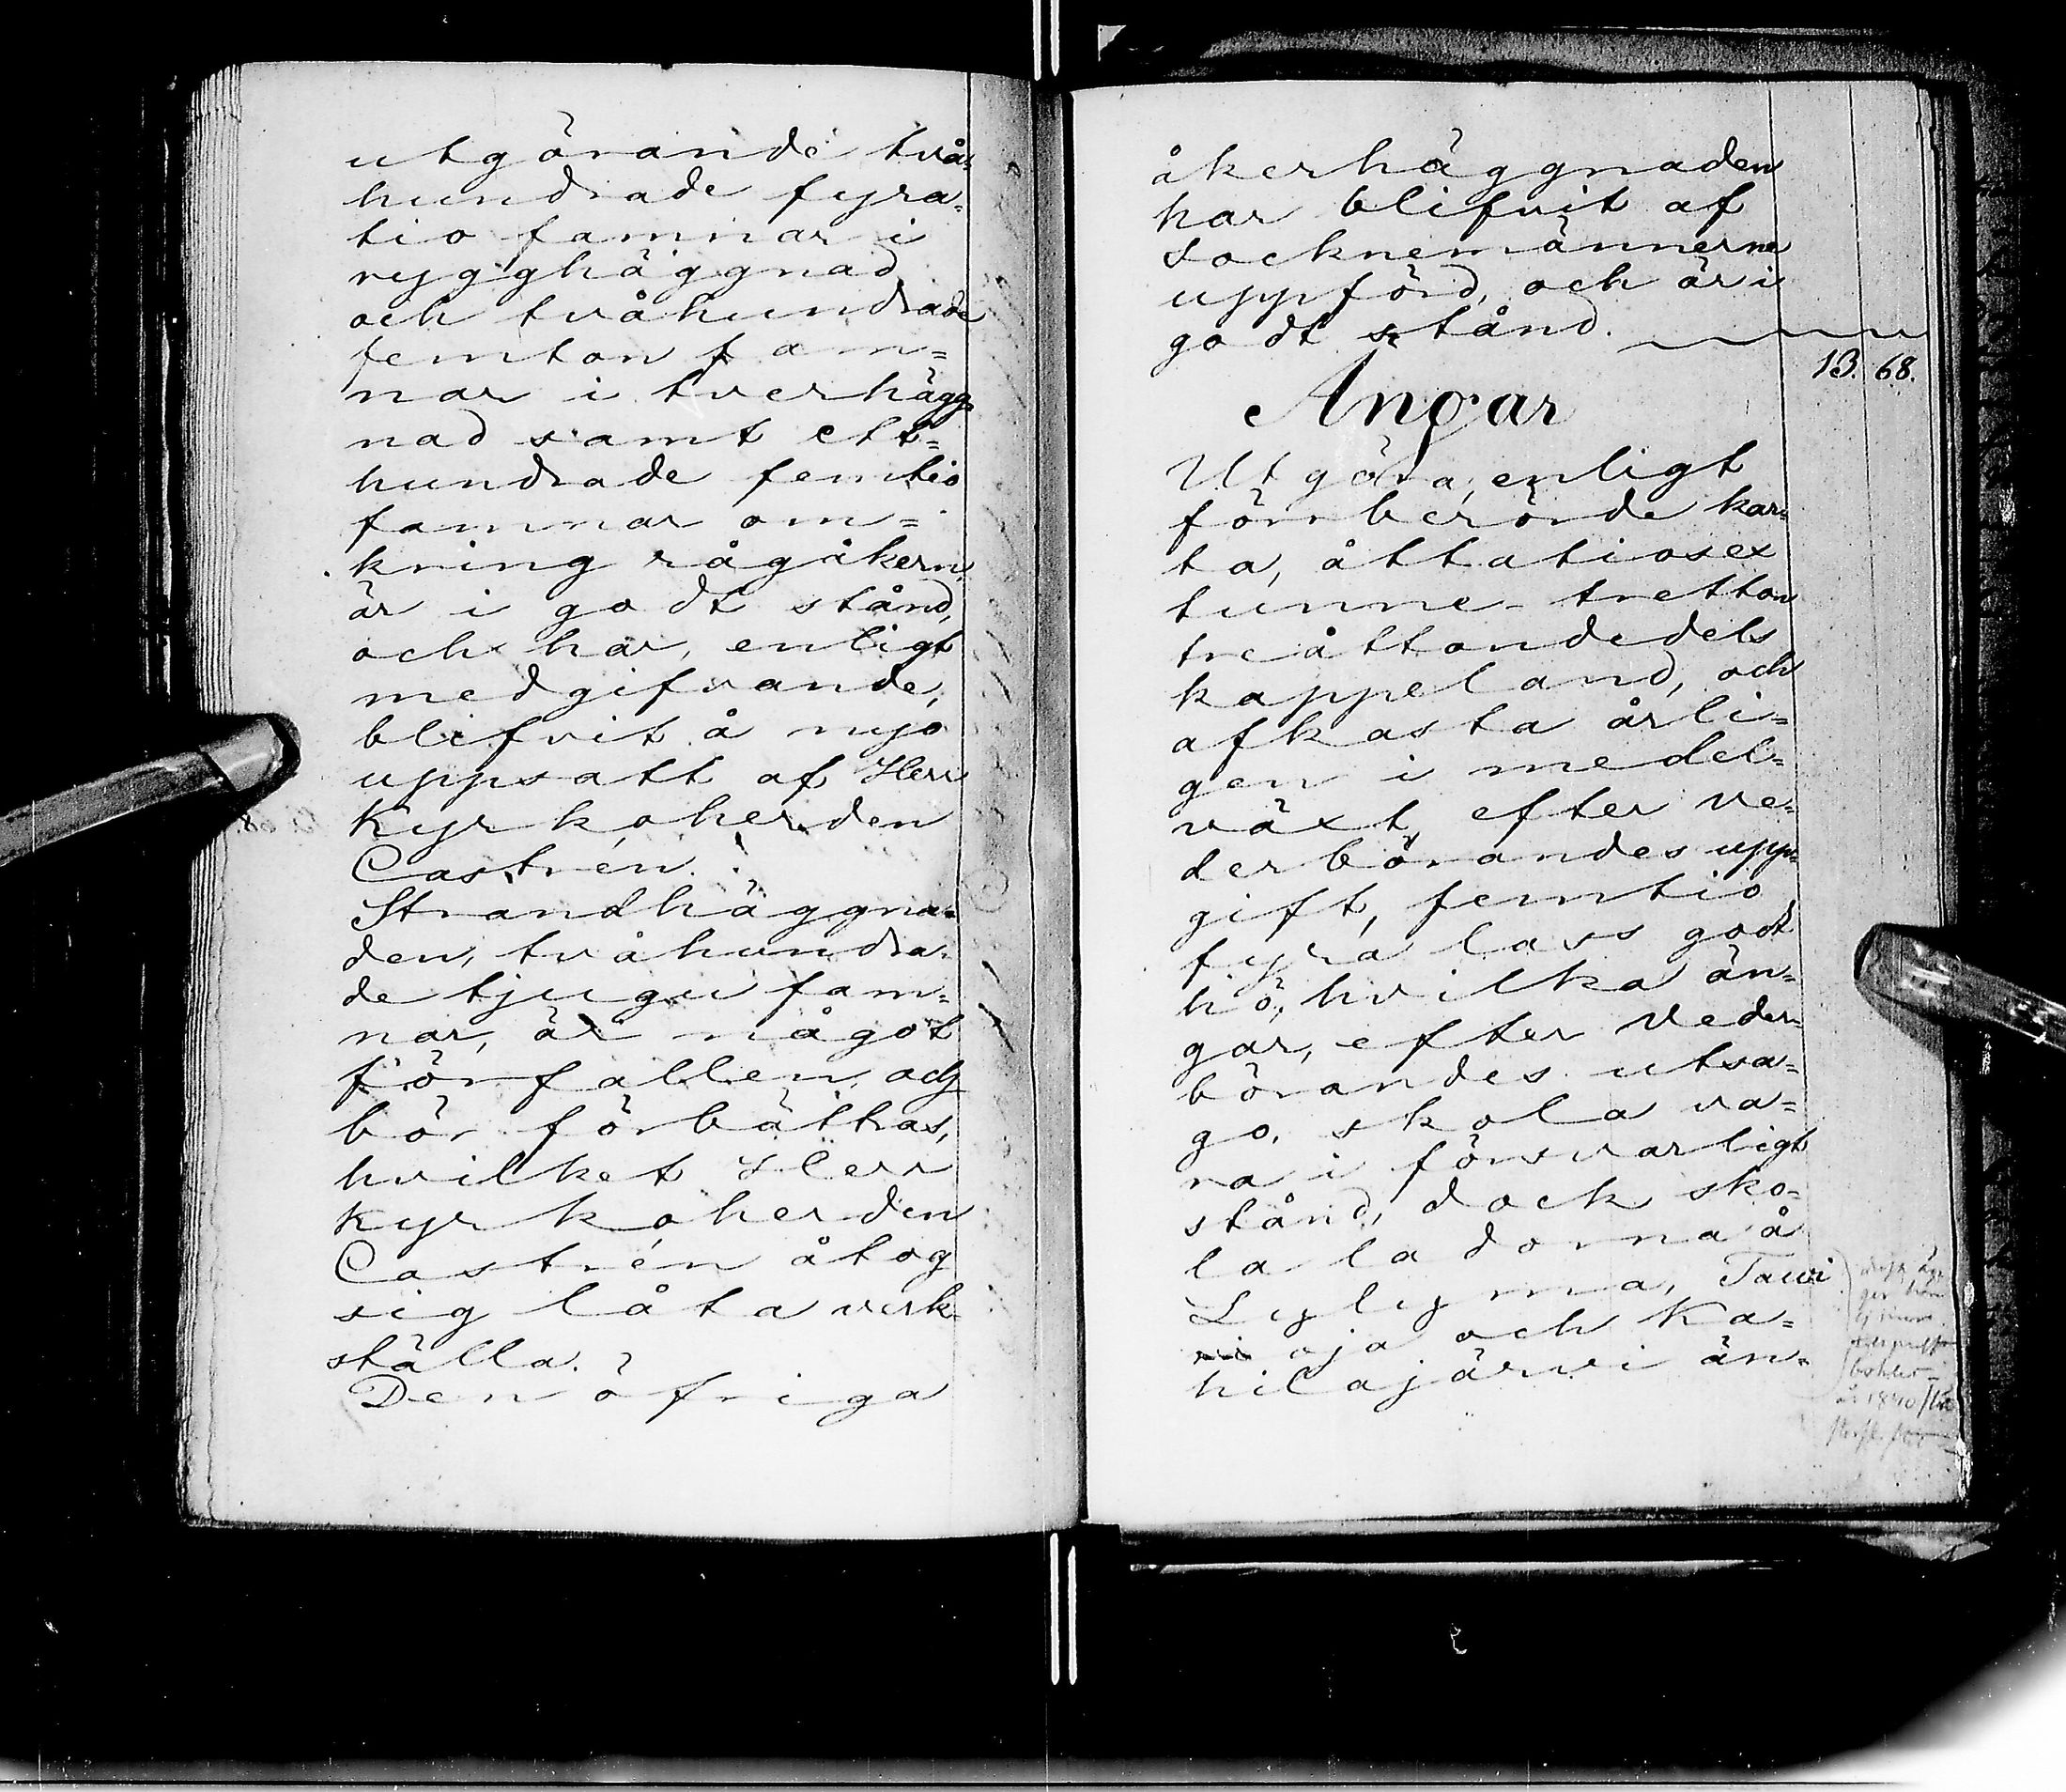 utgörande två-
hundrade fyra-
tio famnar i
rygghäggnad
och tvåhundrade
femton fam=
nar i tverhägg
nad samt ett=
hundrade femtio
famnar om=
kring rågåkern,
är i godt stånd,
och har, enligt
medgifvande,
blifvit å nyo
uppsatt af Herr
Kyrkoherden
Castrén.
Strandhäggna=
den, tvåhundra-
de tjugu fam=
nar, är något
förfallen, och
bör förbättras,
hvilket Herr
Kyrkoherden
Castrén åtog
sig låta verk-
ställa.
Den öfriga
åkerhäggnaden
har blifvit af
socknemännerne
uppförd, och är i
godt stånd.
13. 68.
Ängar
Utgöra, enligt
förrberörde kar-
ta, åttatiosex
tunne- tretton
treåttondedels
kappeland, och
afkasta årli=
gen i medel=
växt, efter ve-
derbörandes upp-
gift, femtio
fyra lass godt
hö, hvilka än=
gar, efter veder-
börandes utsa=
go, skola va=
ra i försvarligt
stånd, dock sko-
la ladorna å
Lylyma, Tawi
oja och Ka=
hilajärvi än=
å 1840